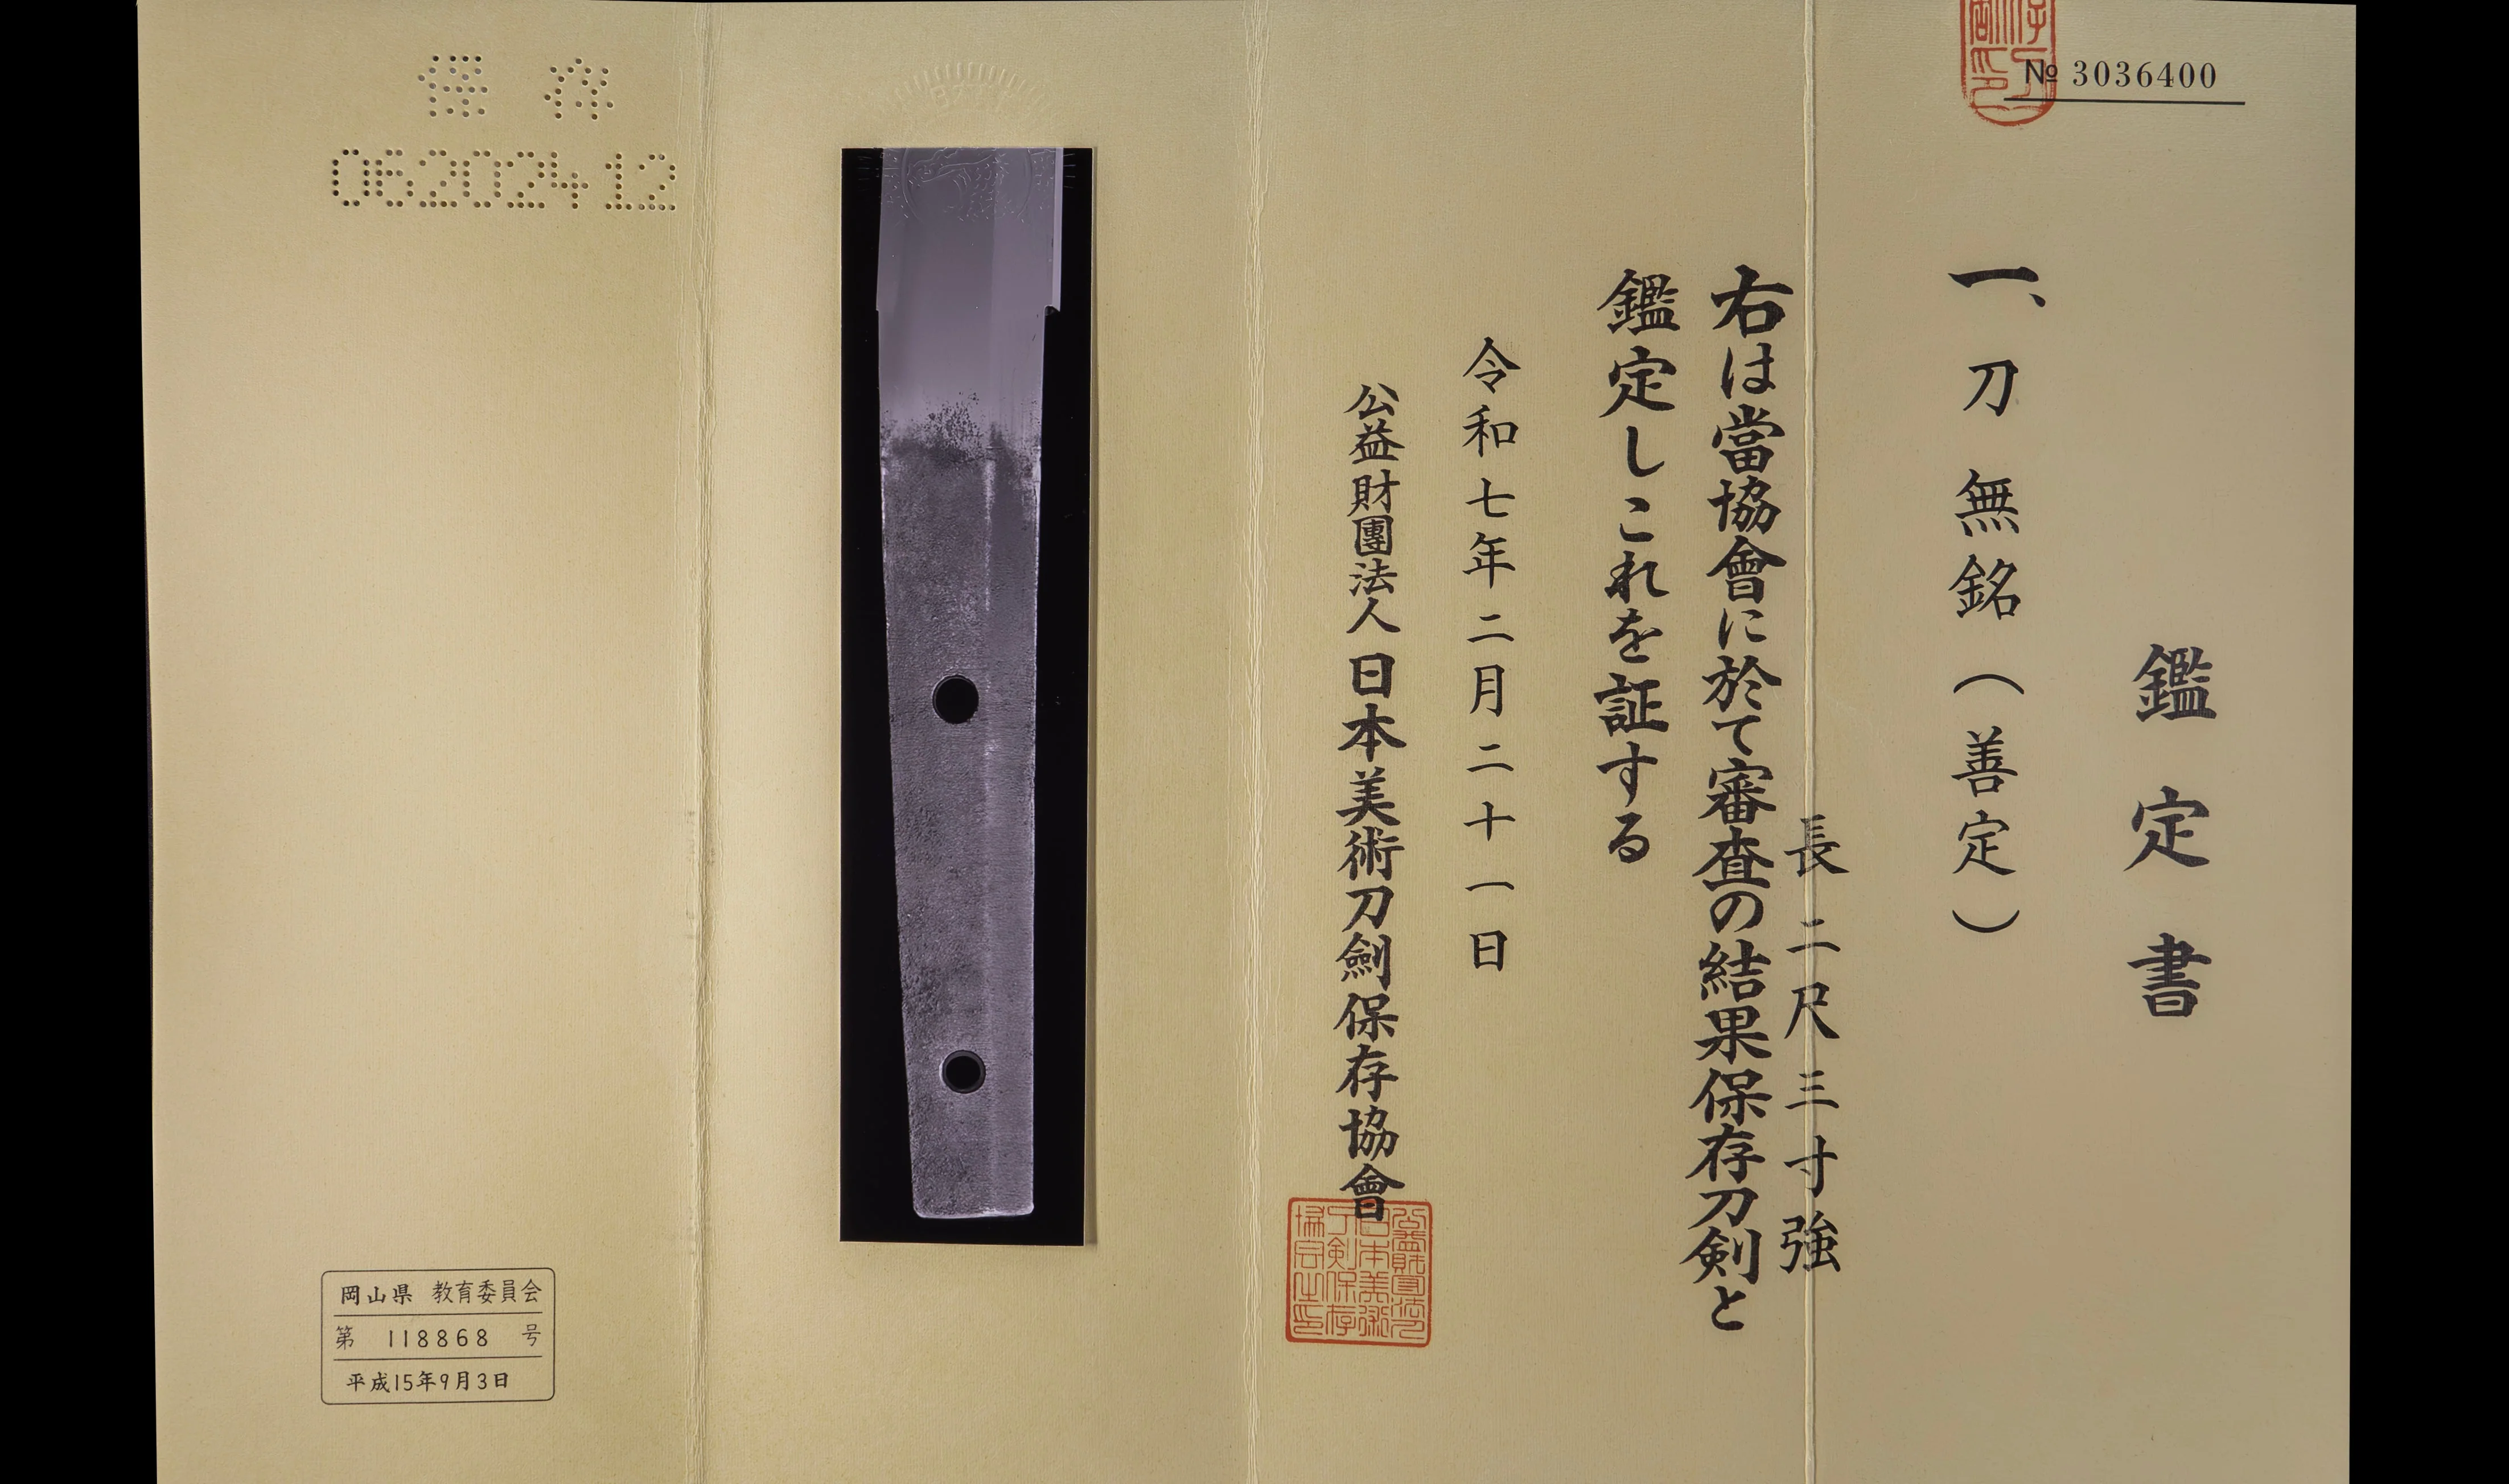 № 3036400
鑑定書
一、刀 無銘（善定）
長 二尺三寸強
右は當協會に於て審査の結果保存刀剣と
鑑定しこれを証する
令和七年二月二十一日
公益財團法人 日本美術刀劍保存協會
保存
06202412
岡山県 教育委員会
第 118868 号
平成15年9月3日